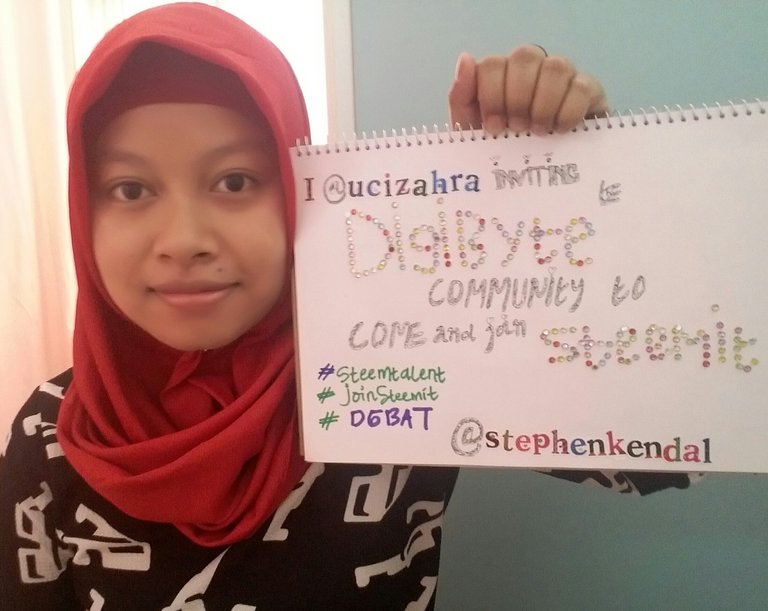 I @ucizahra inviting te
DlaiByte
COMMUNITY to
COME and join Steemit
# Steemtalent
# joinSteemit
# DEBAT
@stephenkendal